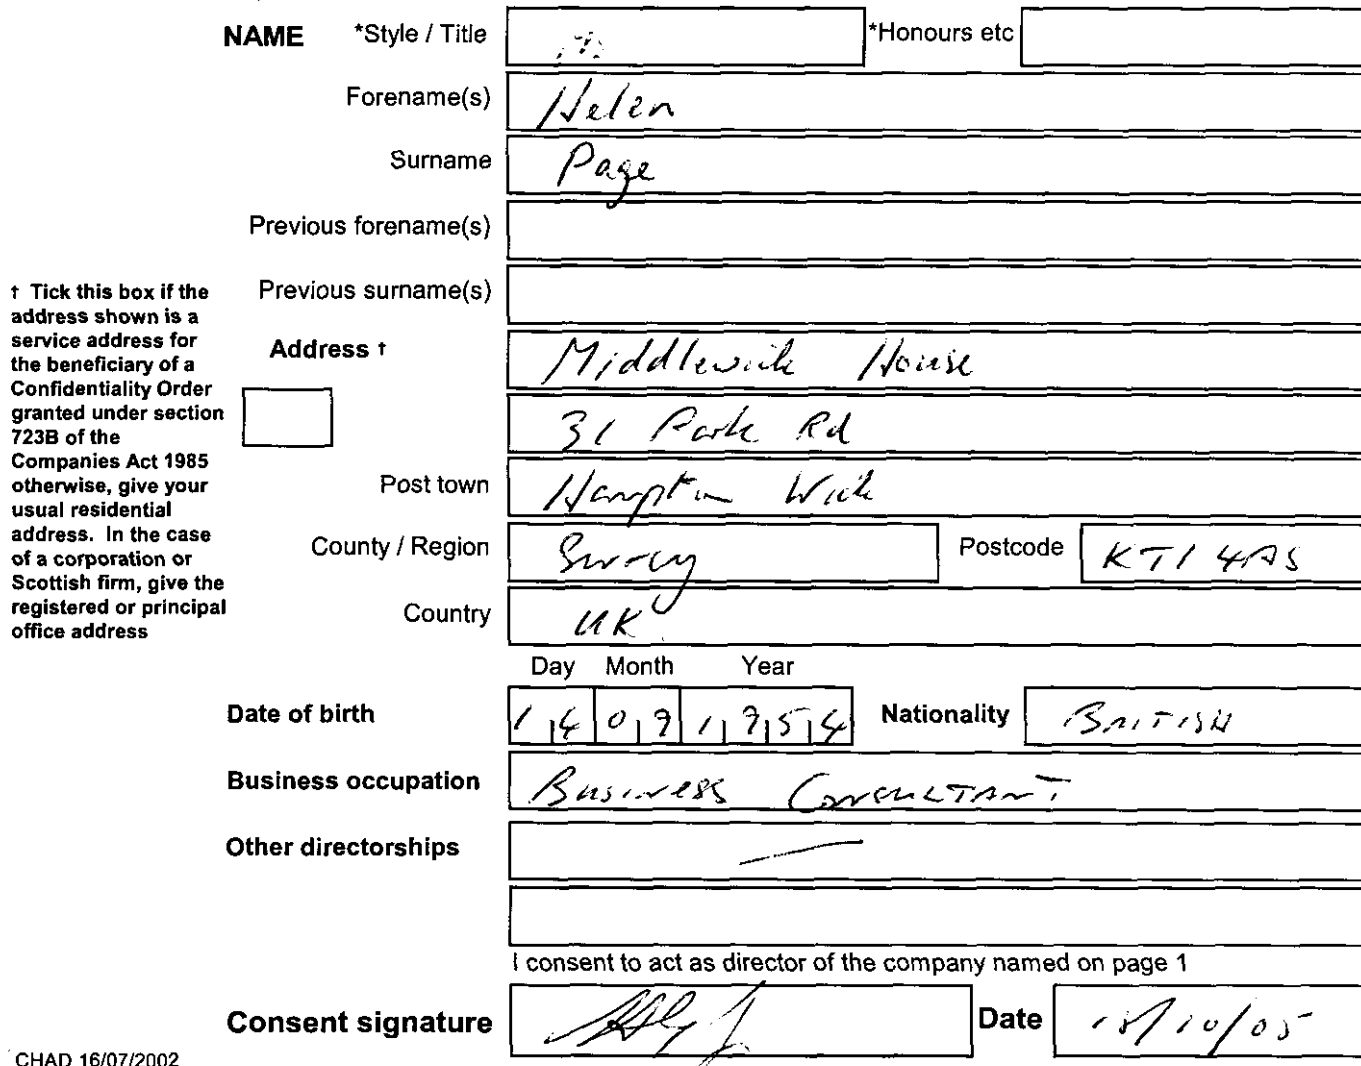 NAME *Style / Title *Honours etc
Forename(s) Helen
Surname Page
Previous forename(s)
Previous surname(s)
† Tick this box if the
address shown is a
service address for
the beneficiary of a
Confidentiality Order
granted under section
723B of the
Companies Act 1985
otherwise, give your
usual residential
address. In the case
of a corporation or
Scottish firm, give the
registered or principal
office address
Address † Middlewick House
31 Park Rd
Post town Hampton Wick
County / Region Surrey Postcode KT1 4AS
Country UK
Day Month Year
Date of birth 14 09 1954 Nationality BRITISH
Business occupation Business CONSULTANT
Other directorships —
I consent to act as director of the company named on page 1
Consent signature Date 18/10/05
CHAD 16/07/2002